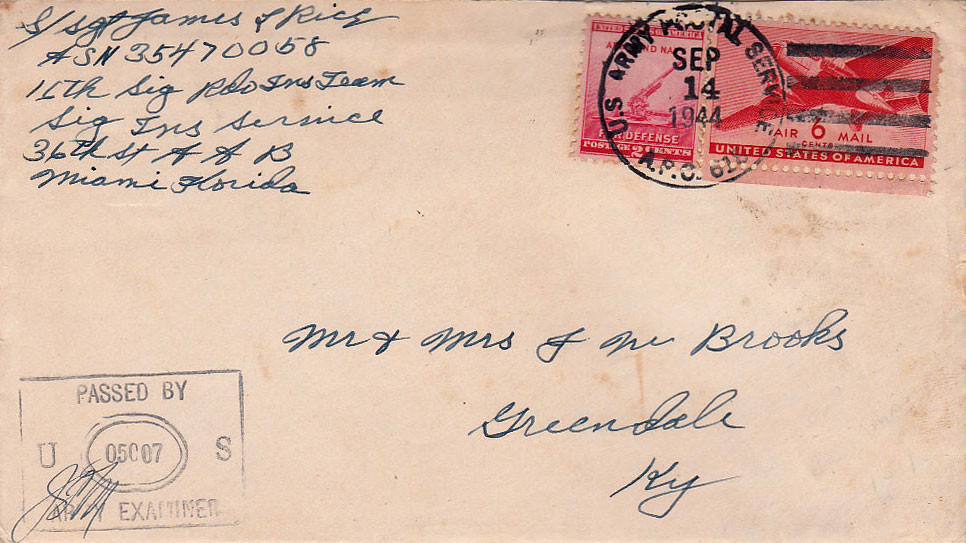 S/Sgt James L Rich
ASN 35470058
11th Sig Rdo Ins Team
Sig Ins Service
36th St A A B
Miami Florida
UNITED STATES OF AMERICA
ARMY AND NAVY
FOR DEFENSE
POSTAGE 2 CENTS
U.S. ARMY POSTAL SERVICE
SEP
14
1944
A.P.O.
AIR 6 MAIL
CENTS
UNITED STATES OF AMERICA
Mr & Mrs J Mc Brooks
Greendale
Ky
PASSED BY
U 05007 S
ARMY EXAMINER